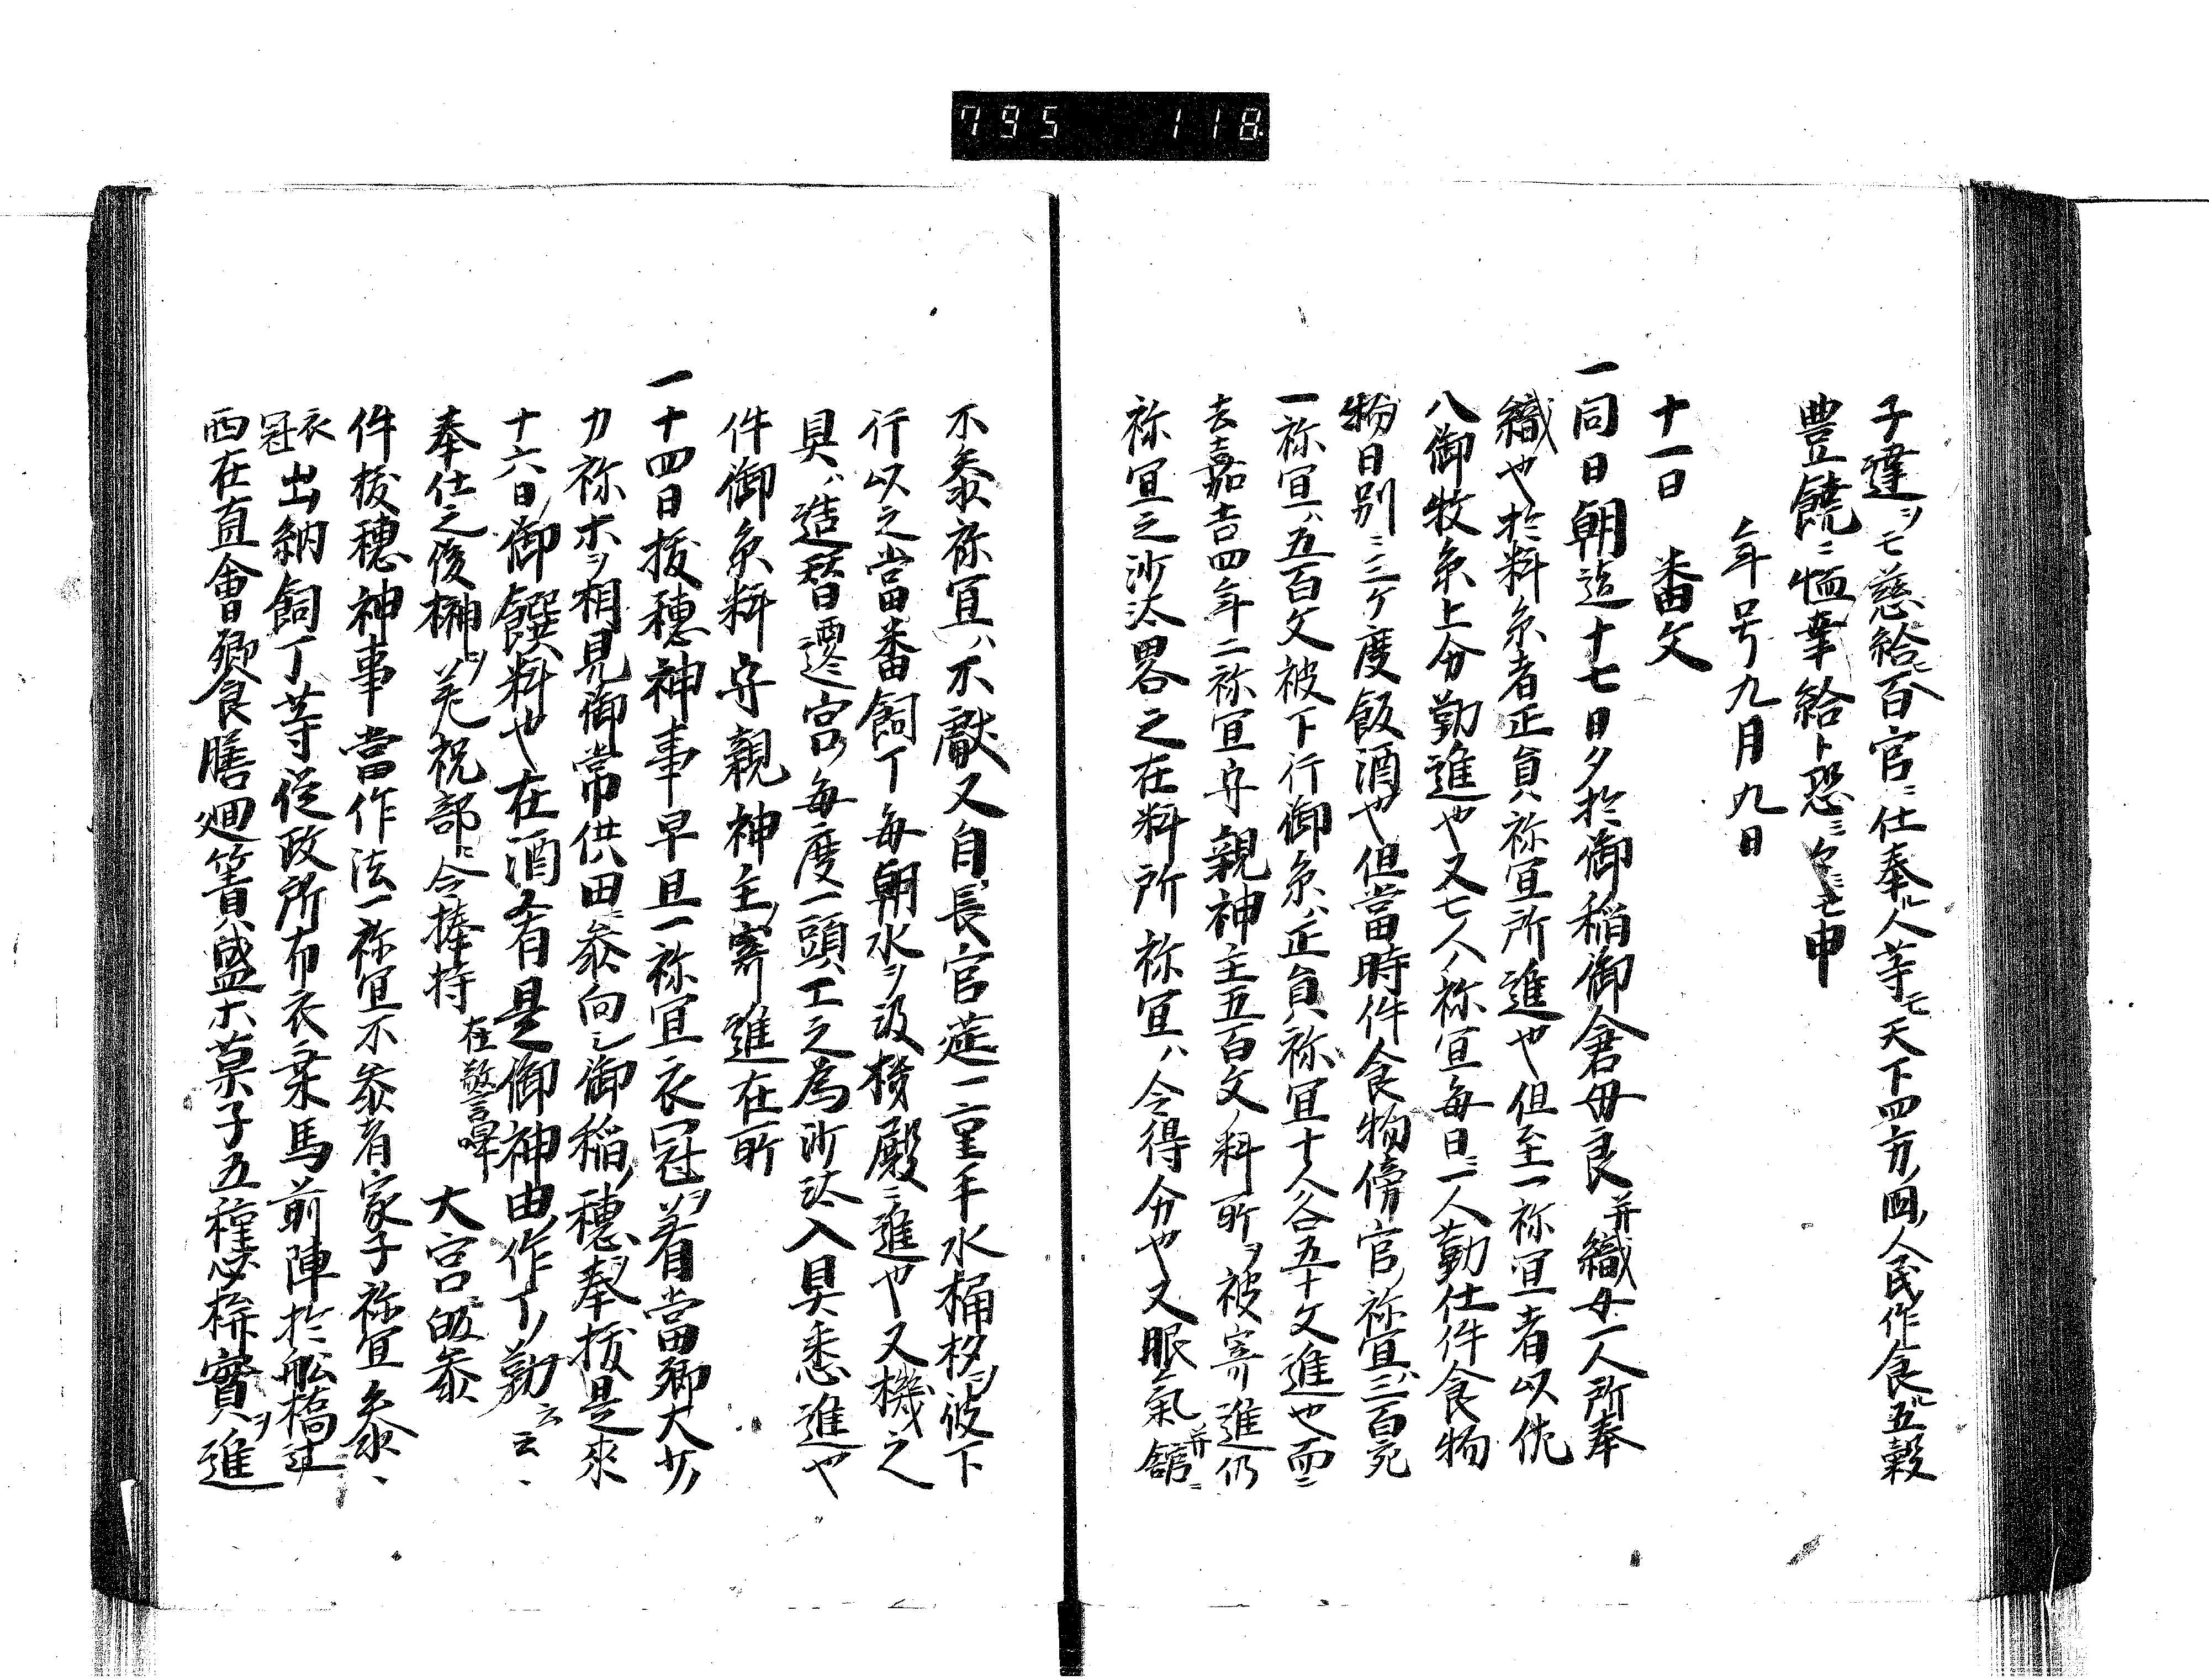 795 118
子達ヲモ慈給ヒ百官ニ仕奉ル人等モ天下四方ノ国ノ人民作食ル五穀
豊饒ニ恤幸給ト恐ミ々ミモ申
年号九月九日
十一日 番文
一同日朝迄十七日夕於御稲御倉毋良并織女一人所奉
織也於料糸者正員ハ祢宜所進也但至一祢宜者以仇
八御牧糸上分勤進也又七人ハ祢宜毎日ニ一人勤仕件食物
物日別ニ三ケ度飯酒也但當時件食物傍官ノ祢宜ハ三百宛
一祢宜ハ五百文被下行御糸ハ正員ハ祢宜十人各五十文進也而ニ
去嘉吉四年二祢宜守親神主五百文ノ料所ヲ被寄進仍
祢宜之沙汰畧之在料所祢宜ハ令得分也又服氣并館ニ
不参祢宜ハ不獻又自長官莚一重手水桶杉ヲ彼下
行以之當番飼丁毎朝水ヲ汲機殿ニ進也又機之
具ハ造替遷宮ノ毎度一頭工之為沙汰入具悉進也
件御糸料守親神主ノ寄進在所
一十四日抜穂神事早旦一祢宜衣冠ヲ着當郷大少ノ
刀祢ホヲ相具御常供田ニ参向シ御稲ノ穂ヲ奉抜是來
十六日御饌料也在酒肴是御神田ノ作丁ノ勤云云
奉仕之後榊ヲ差祝部ニ令捧持在警蹕 大宮皈参
件抜穂神事當作法一祢宜不参者家子祢宜参
衣冠出納飼丁等従政所布衣乗馬前陣於舩橋辻
西在直會饗膳廻簀ハ盛ホ菓子五種必桥實ヲ進